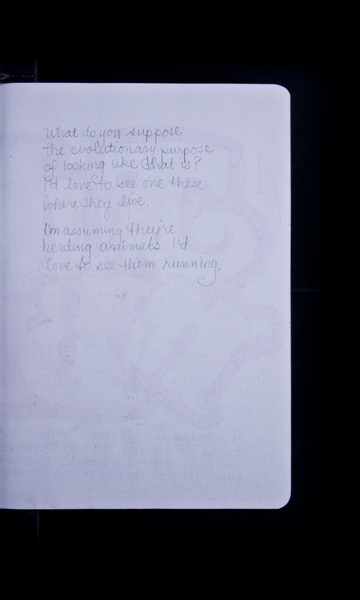 What do you suppose
the evolutionary purpose
of looking like that is?
I'd love to see one these
where they live.
I'm assuming they're
herding animals. I'd
love to see them running.